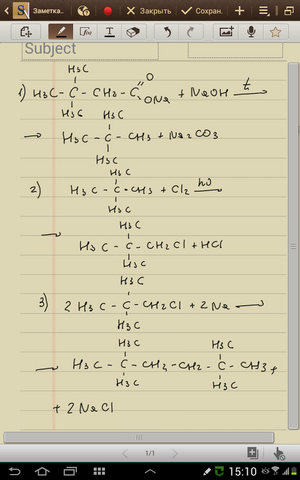 Заметка..
Закрыть
Сохран.
Subject
H₃C
O
1) H₃C - C - CH₂ - C ONa + NaOH t
H₃C H₃C
→ H₃C - C - CH₃ + Na₂CO₃
H₃C
H₃C
2) H₃C - C - CH₃ + Cl₂ hν
H₃C
H₃C
→ H₃C - C - CH₂Cl + HCl
H₃C
H₃C
3) 2 H₃C - C - CH₂Cl + 2 Na →
H₃C
H₃C H₃C
→ H₃C - C - CH₂ - CH₂ - C - CH₃ +
H₃C H₃C
+ 2 NaCl
1/1
15:10